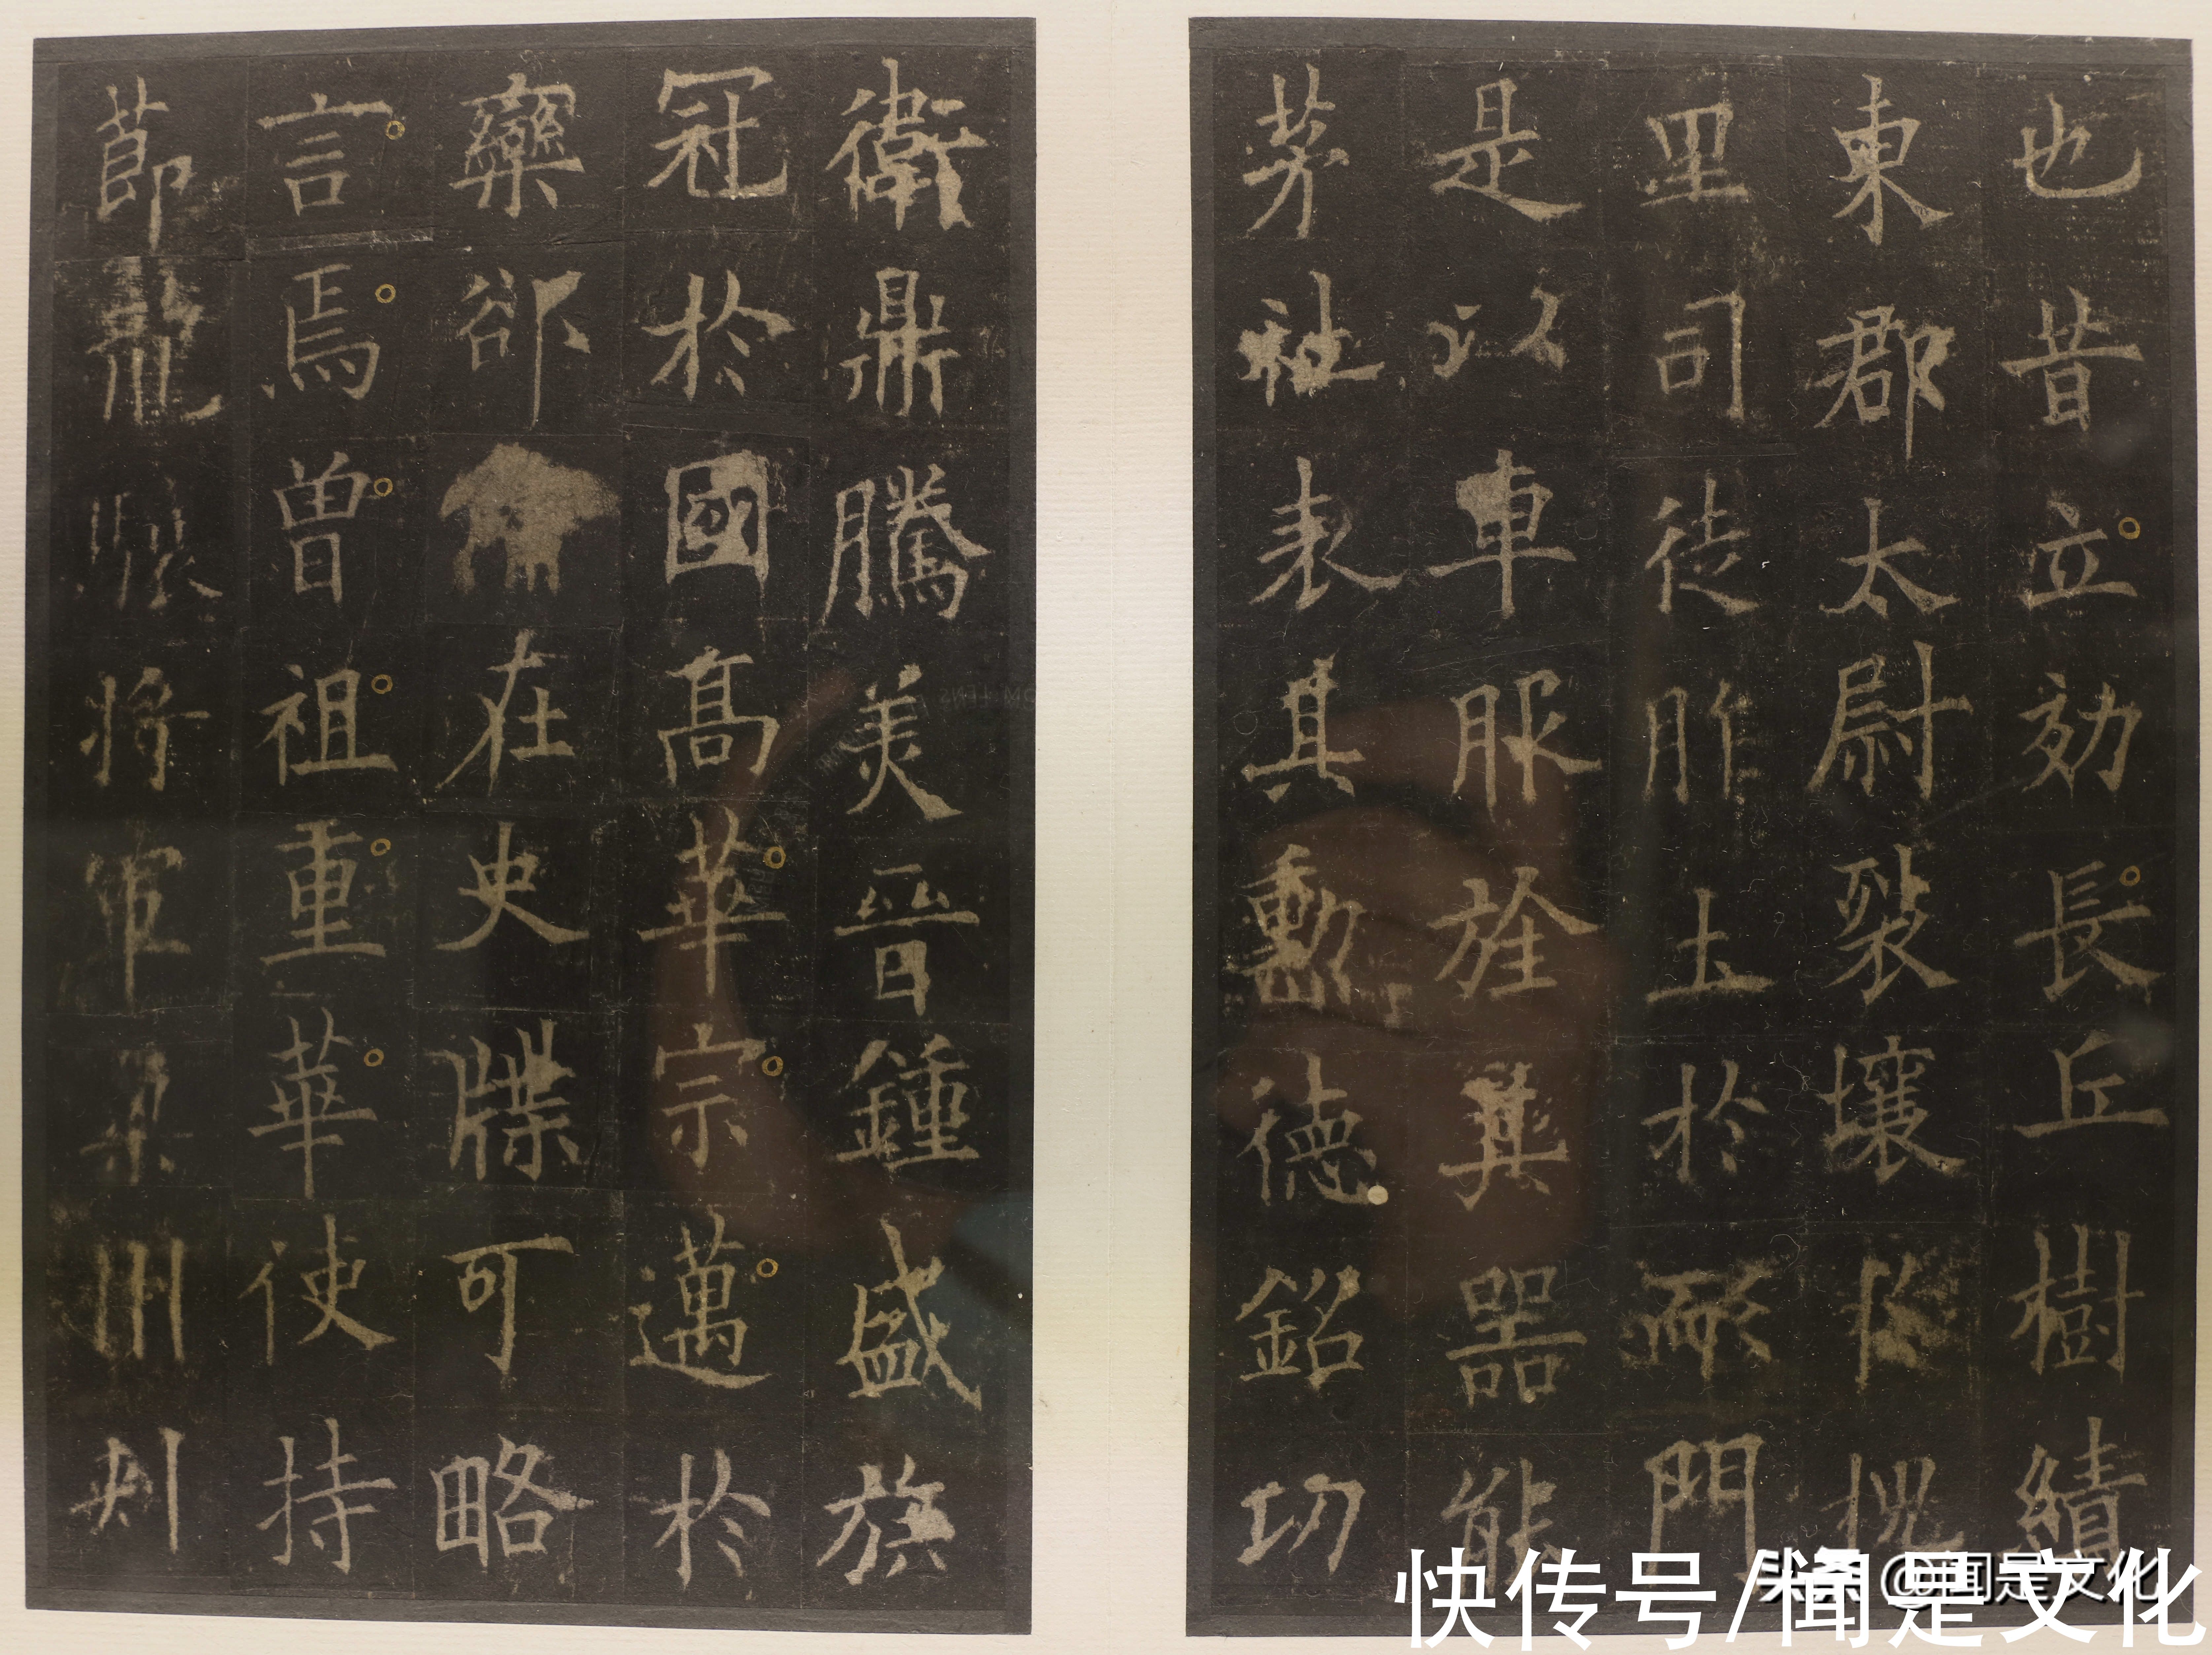 也昔立効長丘樹績
東郡太尉裂壤於槐
里司徒胙土於耏門
是以車服旌其器能
茅社表其勳德銘功
衛鼎騰美晉鍾盛族
冠於國高華宗邁於
欒郤在史牒可略
言焉曾祖重華使持
節龍驤將軍梁州刺
头条 @闻是文化
快传号/闻是文化